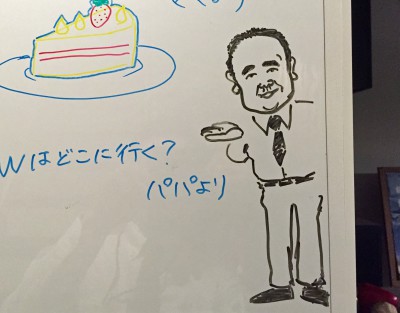 Wはどこに行く?
パパより